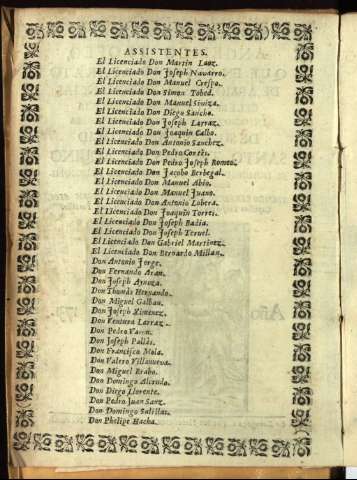 ASSISTENTES.
El Licenciado Don Martin Laoz.
El Licenciado Don Joseph Navarro.
El Licenciado Don Manuel Crespo.
El Licenciado Don Simon Tobed.
El Licenciado Don Manuel
El Licenciado Don Diego Sancho.
El Licenciado Don Joseph Larraz.
El Licenciado Don Joaquin Calbo.
El Licenciado Don Antonio Sanchez.
El Licenciado Don Pedro
El Licenciado Don Pedro Joseph Romeo.
El Licenciado Don Jacobo Berbegal.
El Licenciado Don Manuel Abio.
El Licenciado Don Manuel Juane.
El Licenciado Don Antonio Lobera.
El Licenciado Don Joaquin Torres.
El Licenciado Don Joseph Badia.
El Licenciado Don Joseph Teruel.
El Licenciado Don Gabriel Martinez.
El Licenciado Don Bernardo Millan.
Don Antonio Jorge.
Don Fernando Aran.
Don Joseph
Don Thomàs Hernando.
Don Miguel Galban.
Don Joseph Ximenez.
Don Ventura Larraz.
Don Pedro
Don Joseph Pallàs.
Don Francisco Mola.
Don Valero Villanueva.
Don Miguel Brabo.
Don Domingo Alcrudo.
Don Diego Llorente.
Don Pedro Juan Sanz.
Don Domingo Salillas.
Don Phelipe Hacha.